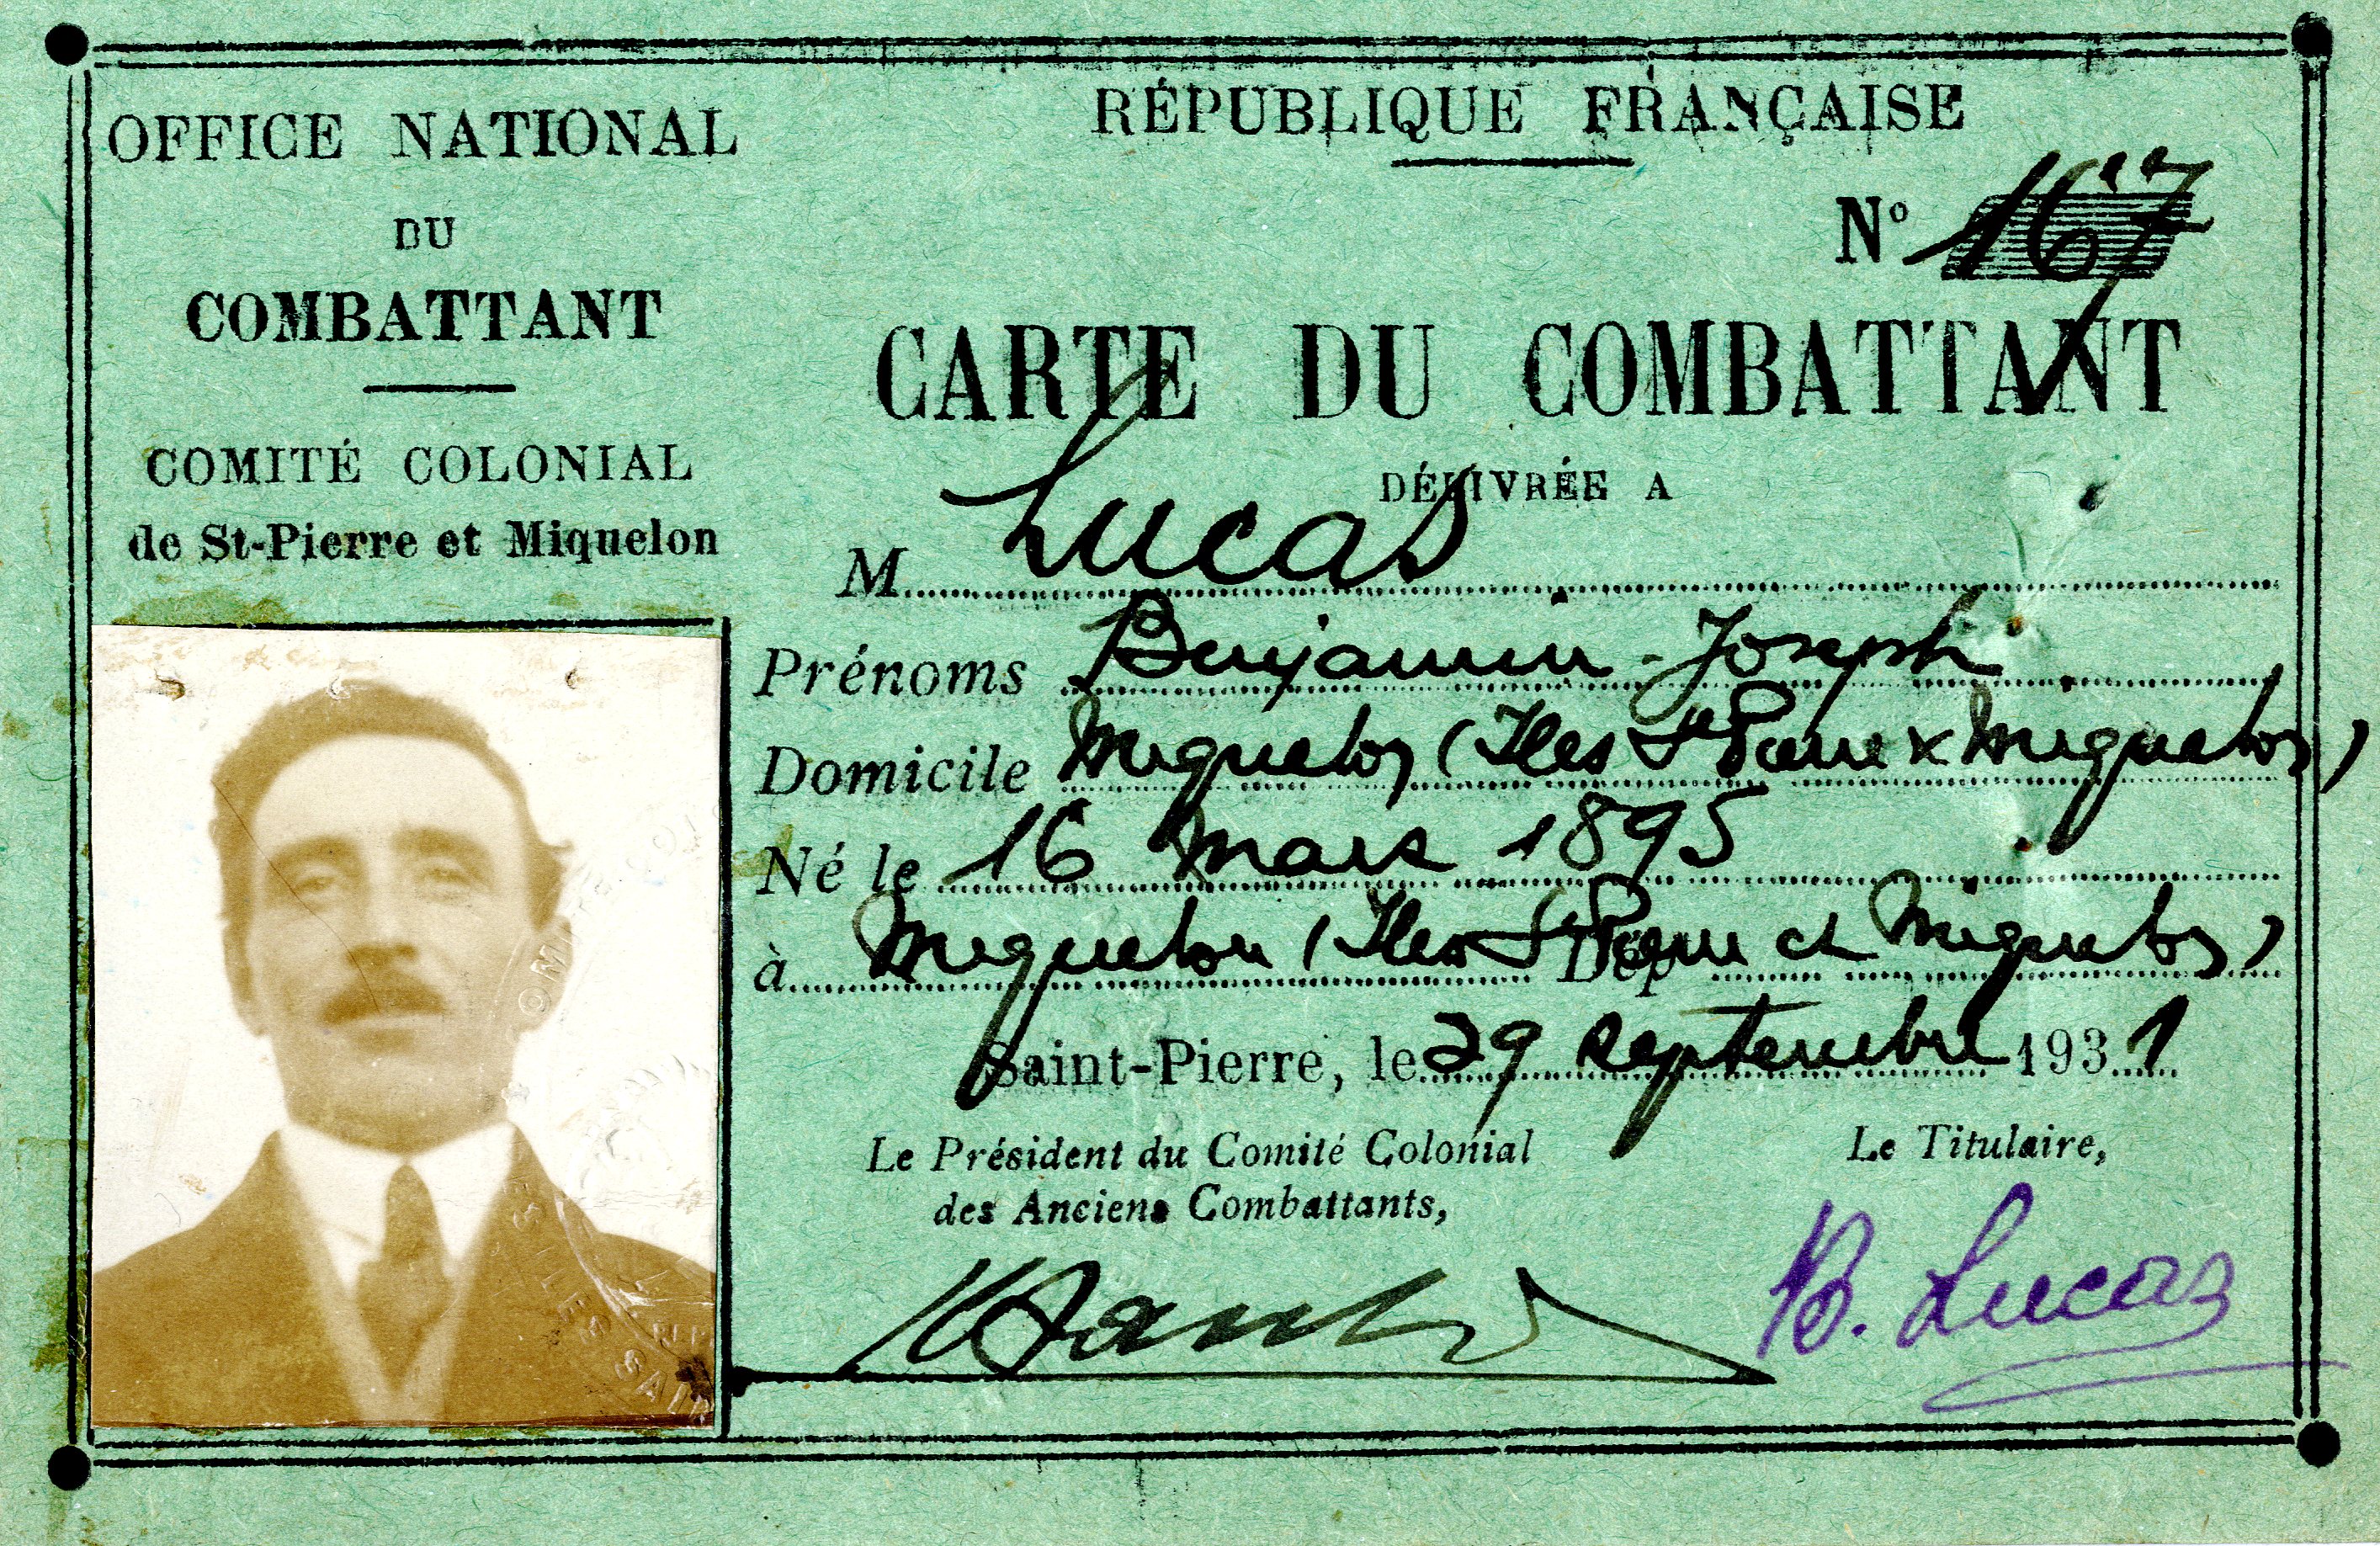 OFFICE NATIONAL
DU
COMBATTANT
COMITÉ COLONIAL
de St-Pierre et Miquelon
RÉPUBLIQUE FRANÇAISE
N° 167
CARTE DU COMBATTANT
DÉLIVRÉE A
M. Lucas
Prénoms Benjamin - Joseph
Domicile Miquelon (Iles St Pierre & Miquelon)
Né le 16 mars 1895
à Miquelon (Iles St Pierre et Miquelon) Dép
Saint-Pierre, le 29 septembre 1931
Le Président du Comité Colonial
des Anciens Combattants,
Le Titulaire,
B. Lucas